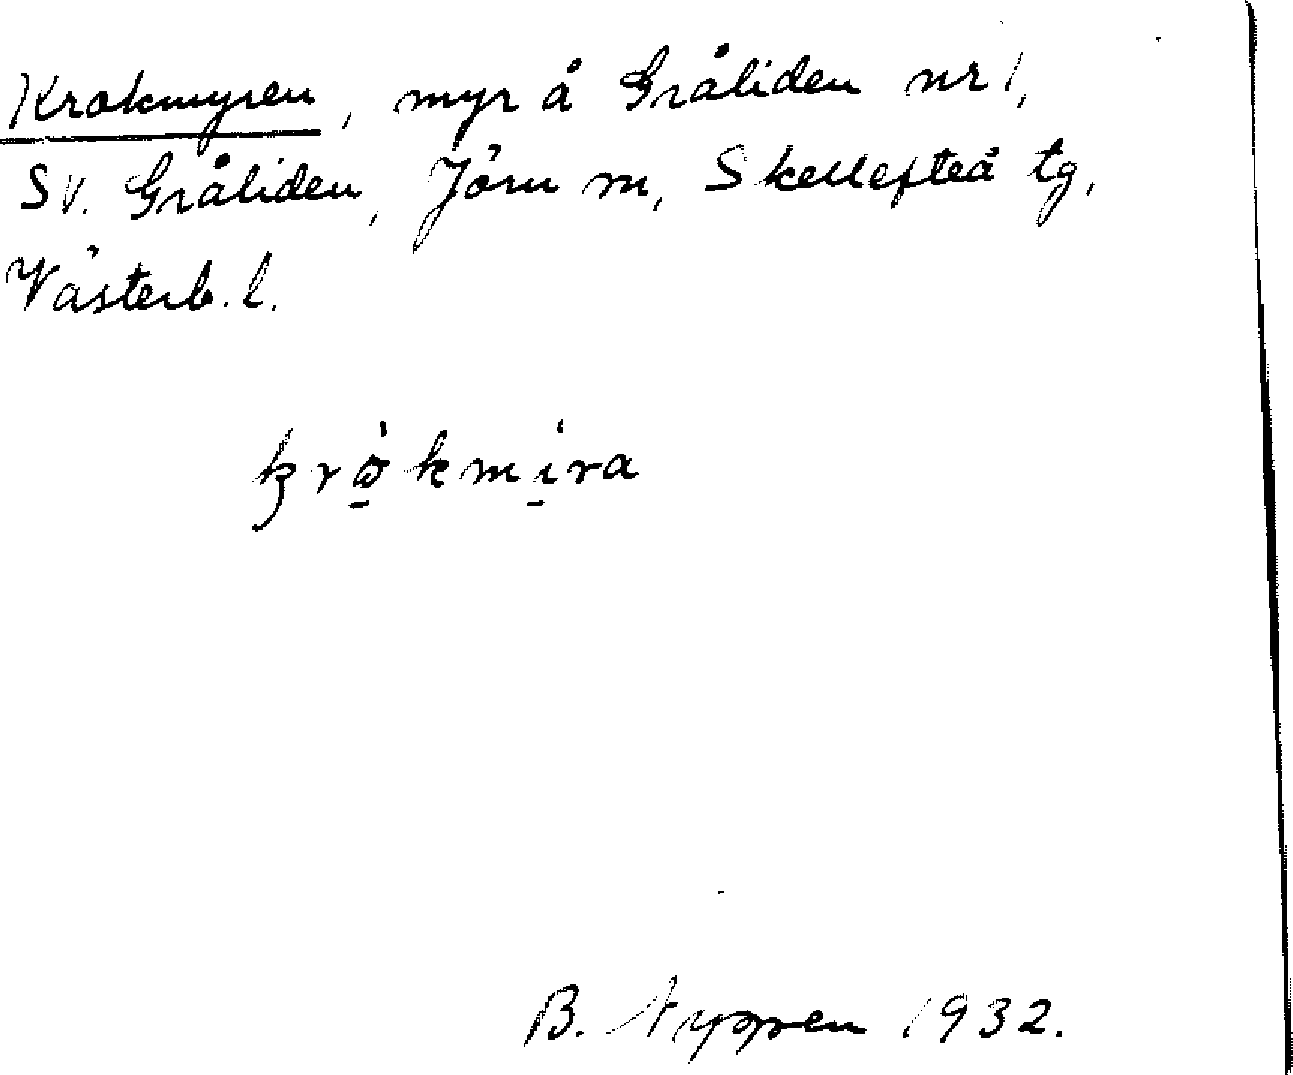 Krokmyren, myr å Gråliden nr 1,
Sv. Gråliden, Jörn sn, Skellefteå tg,
Västerb. l.
krò̱kmi̱ra
B. Nyppen 1932.